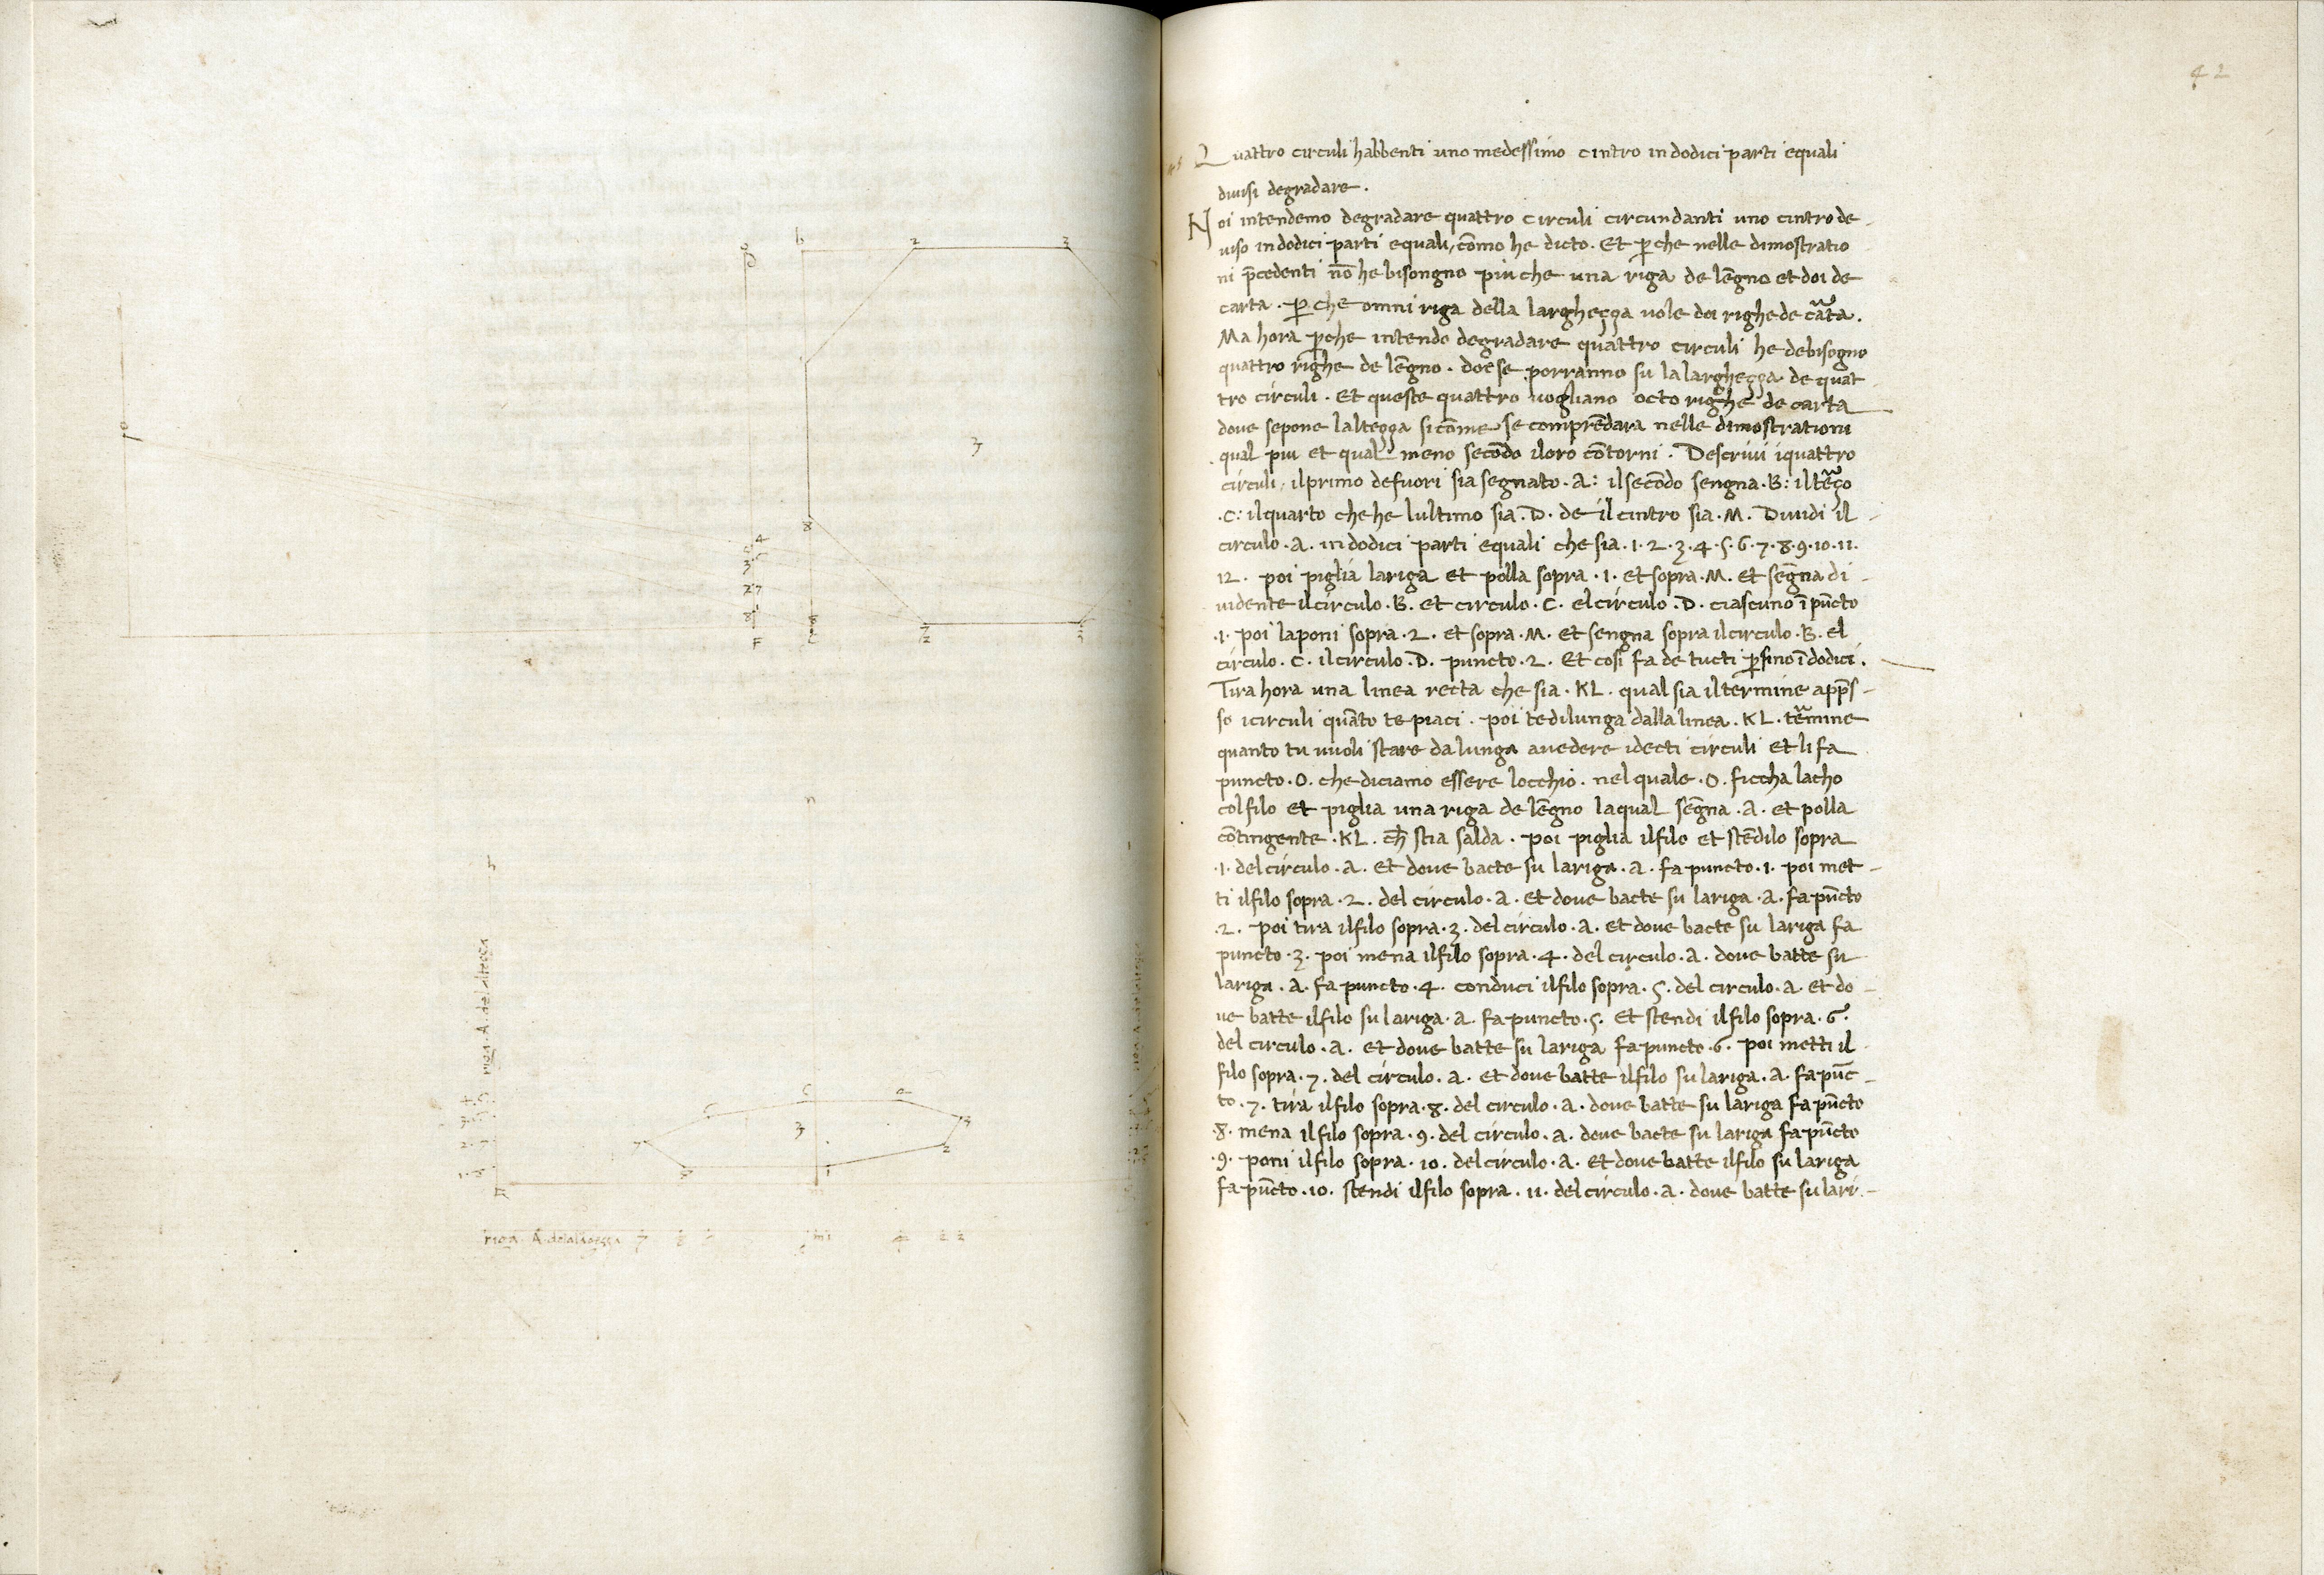 42
Quattro circuli habbenti uno medessimo cintro in dodici parti equali
divisi degradare.
Noi intendemo degradare quattro circuli circundanti uno cintro de-
viso in dodici parti equali, cōmo he dicto. Et ꝑche nelle dimostratio
ni p̄cedenti nō he bisongno piu che una riga de lēgno et doi de
carta. ꝑ che omni riga della larghecça vole doi righe de carta.
Ma hora ꝑche intendo degradare quattro circuli he debisogno
quattro righe de lēgno. doe se porranno su la larghecça de quat
tro circuli. Et queste quattro vogliano octo righe de carta
dove sepone laltecça sicōme se comprēdara nelle dimostrationi
qual piu et qual meno secōdo iloro cōtorni. Descrivi iquattro
circuli, ilprimo defuori sia segnato .A: ilsecōdo sengna .B: il terço
.C: ilquarto che he lultimo sia .D. de il cintro sia .M. Dividi il-
circulo .A. in dodici parti equali che sia .1.2.3.4.5.6.7.8.9.10.11.
12. poi piglia lariga et polla sopra .1. et sopra .M. et segna di-
vidente ilcirculo .B. et circulo .C. elcirculo .D. ciascuno ī pūcto
.1. poi laponi sopra .2. et sopra .M. et sengna sopra ilcirculo .B. el
circulo .C. ilcirculo .D. puncto .2. Et cosi fa de tucti ꝑfino ī dodici.
Tira hora una linea recta che sia .KL. qual sia iltermine app̄s-
so icirculi quāto te piaci. poi te dilunga dalla linea .KL. termine
quanto tu vuoli stare da lunga avedere idecti circuli et li fa
puncto .O. che diciamo essere locchio. nel quale .O. ficcha lacho
colfilo et piglia una riga de lēgno laqual sēgna .A. et polla
cōtingente .KL. ch̄ stia salda. poi piglia ilfilo et stēdilo sopra
.1. delcirculo .A. et dove bacte su lariga .A. fa puncto .1. poi met-
ti ilfilo sopra .2. del circulo .A. et dove bacte su lariga .A. fa pūcto
.2. poi tira ilfilo sopra .3. delcirculo .A. et dove bacte su lariga fa
puncto .3. poi mena ilfilo sopra .4. del circulo .A. dove batte su
lariga .A. fa puncto .4. conduci ilfilo sopra .5. del circulo .A. et do-
ve batte ilfilo su lariga .A. fa puncto .5. Et stendi ilfilo sopra .6.
del circulo .A. et dove batte su lariga fa puncto .6. poi metti il
filo sopra .7. del circulo .A. et dove batte ilfilo su lariga .A. fa pūc-
to .7. tira ilfilo sopra .8. del circulo .A. dove batte su lariga fa pūcto
.8. mena ilfilo sopra .9. del circulo .A. dove bacte su lariga fa pūcto
.9. poni ilfilo sopra .10. delcirculo .A. et dove batte ilfilo su lariga
fa pūcto .10. stendi ilfilo sopra .11. del circulo .A. dove batte su lari-